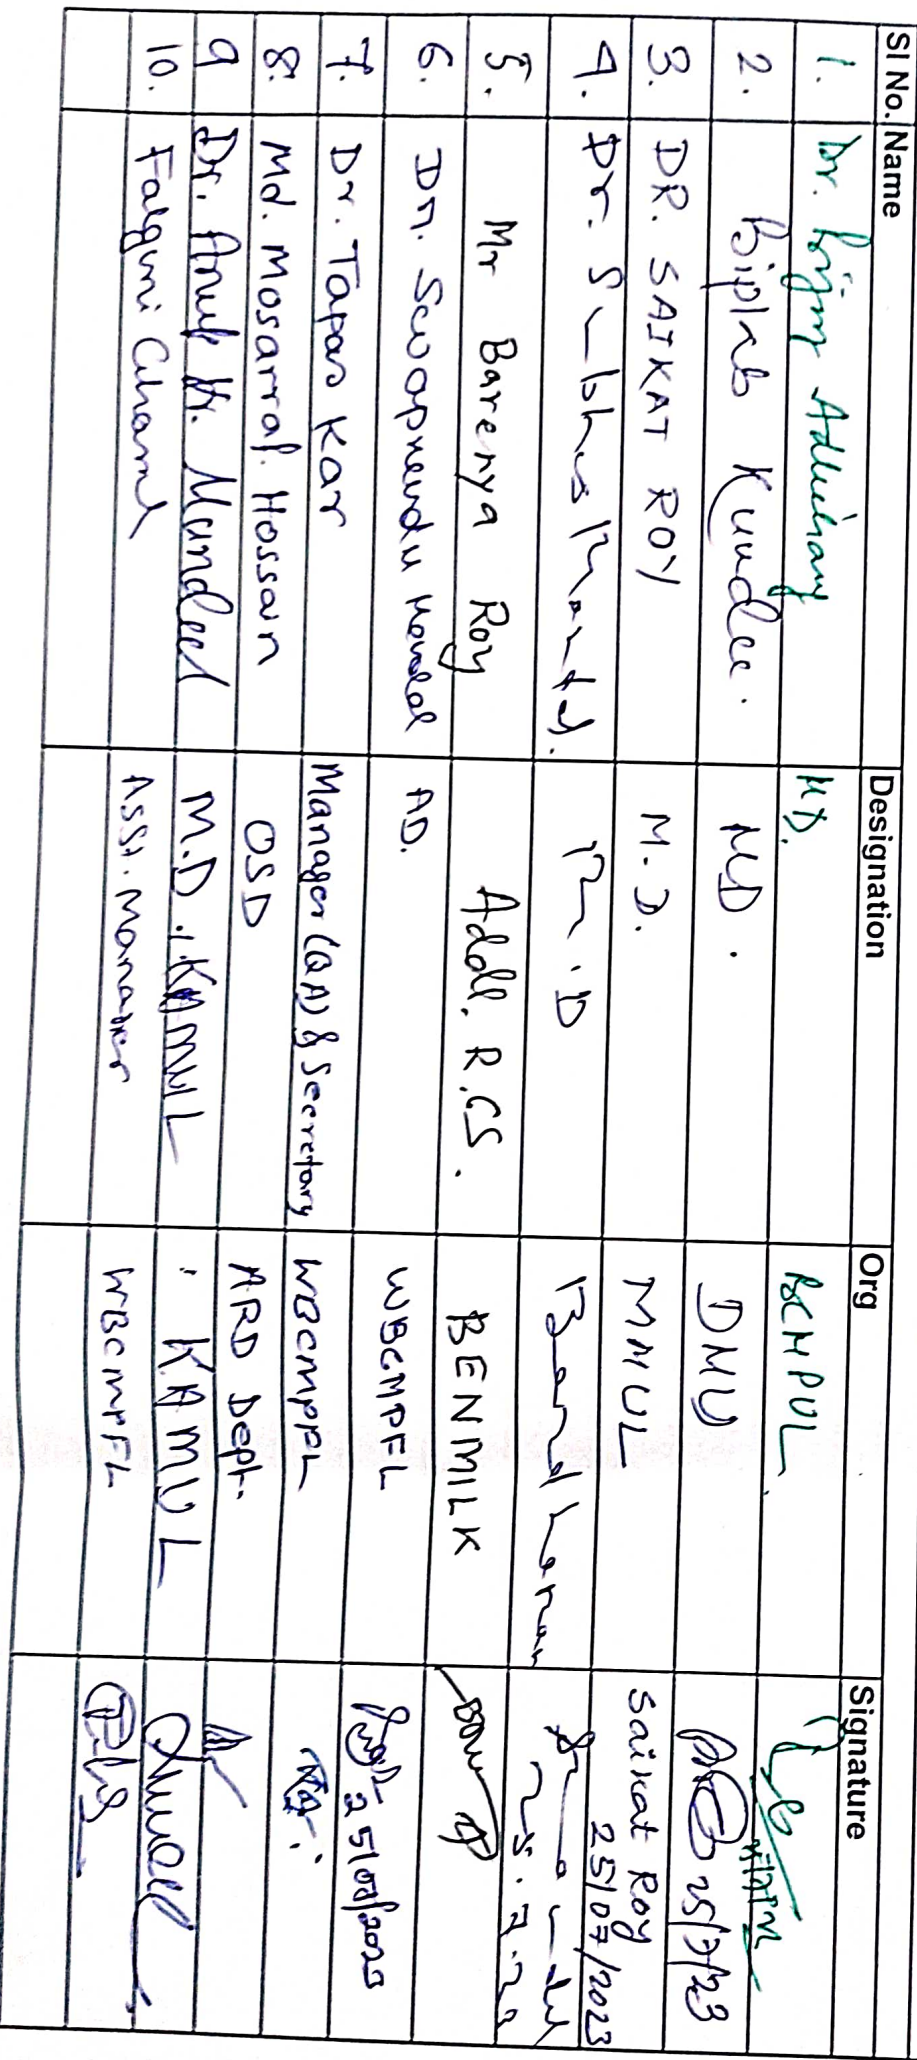 Sl No. Name Designation Org Signature
1. Dr. Adhikary M.D.
2. Biplab Kundu. MD. DMU 25/7/23
3. DR. SAIKAT ROY M.D. MMUL Saikat Roy 25/07/2023
4. Dr. Subhas Mandal. M.D 25.7.23
5. Mr Barenya Roy Addl. R.C.S. BENMILK
6. Dr. Swapnendu Mondal AD. WBCMPFL
7. Dr. Tapas Kar Manager (QA) & Secretary WBCMPFL
8. Md. Mosarraf. Hossain OSD ARD Dept.
9 Dr. M.D., KAMUL KAMUL
10. Falguni Asst. Manager WBCMPFL